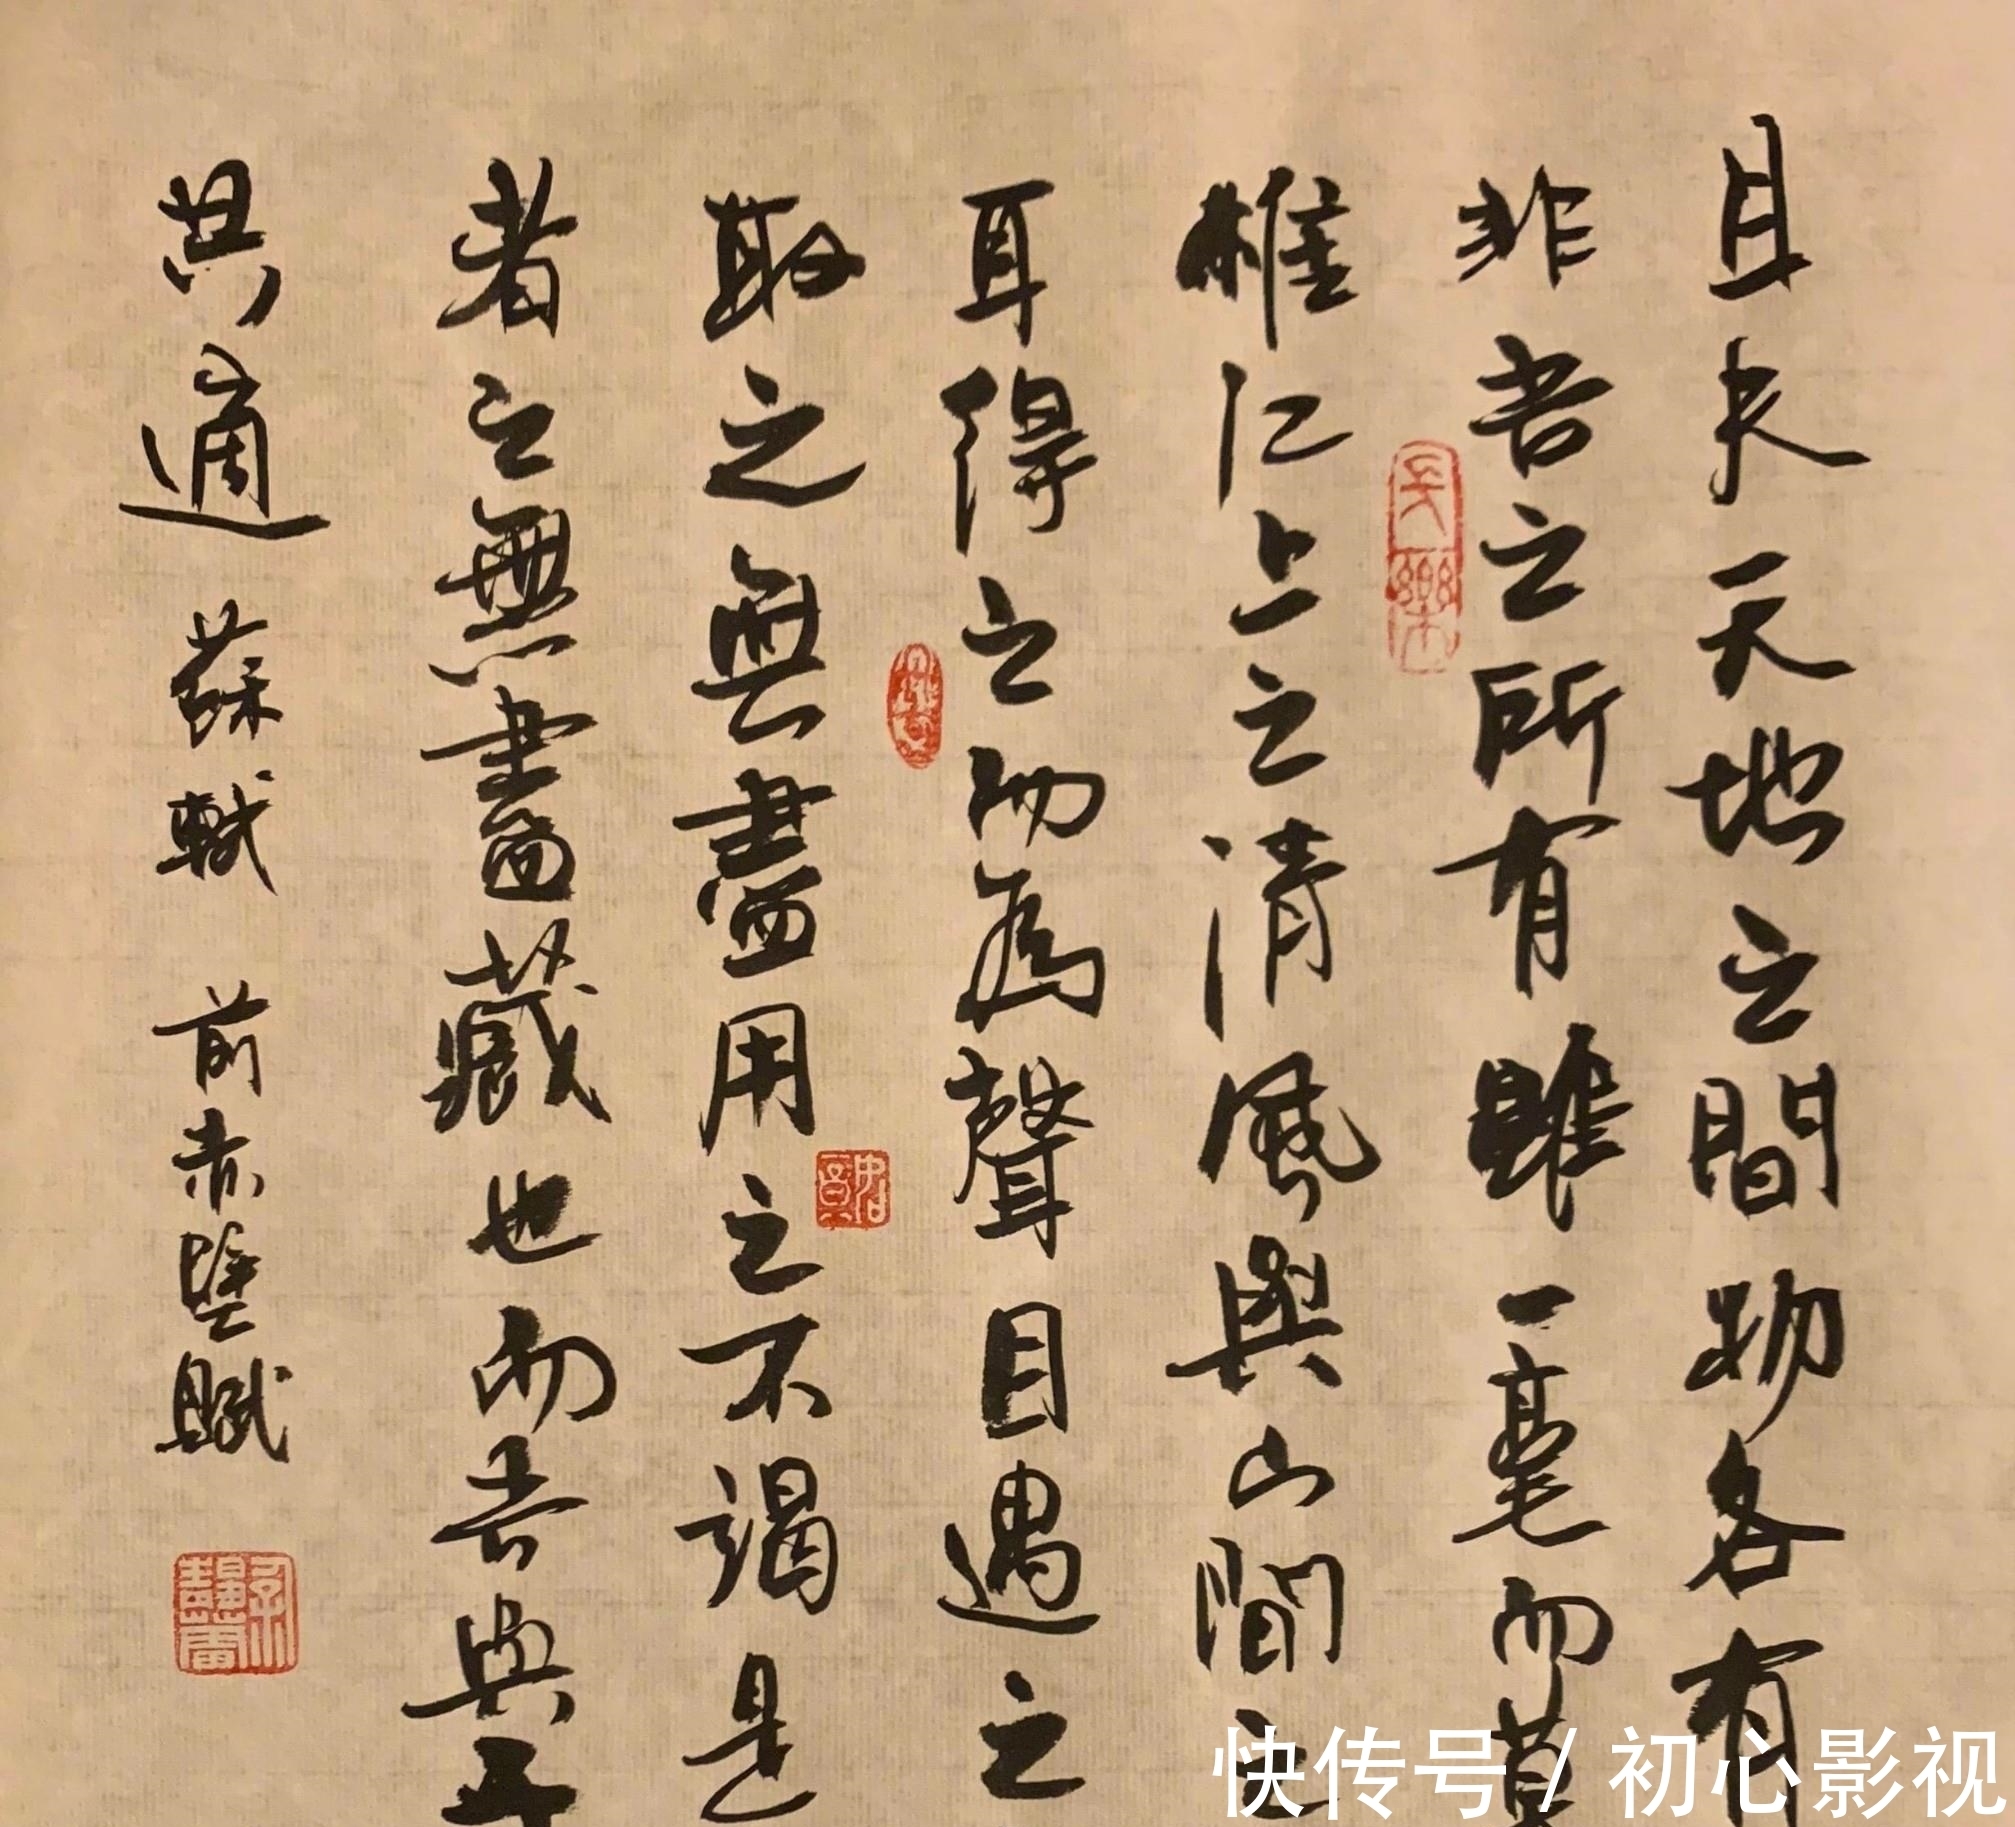 且夫天地之間物各有
非吾之所有雖一毫而莫
惟江上之清風與山間之
耳得之而為聲目遇之
取之無盡用之不竭是
者之無盡藏也而吾與子
共適 蘇軾 前赤壁賦
快传号 / 初心影视